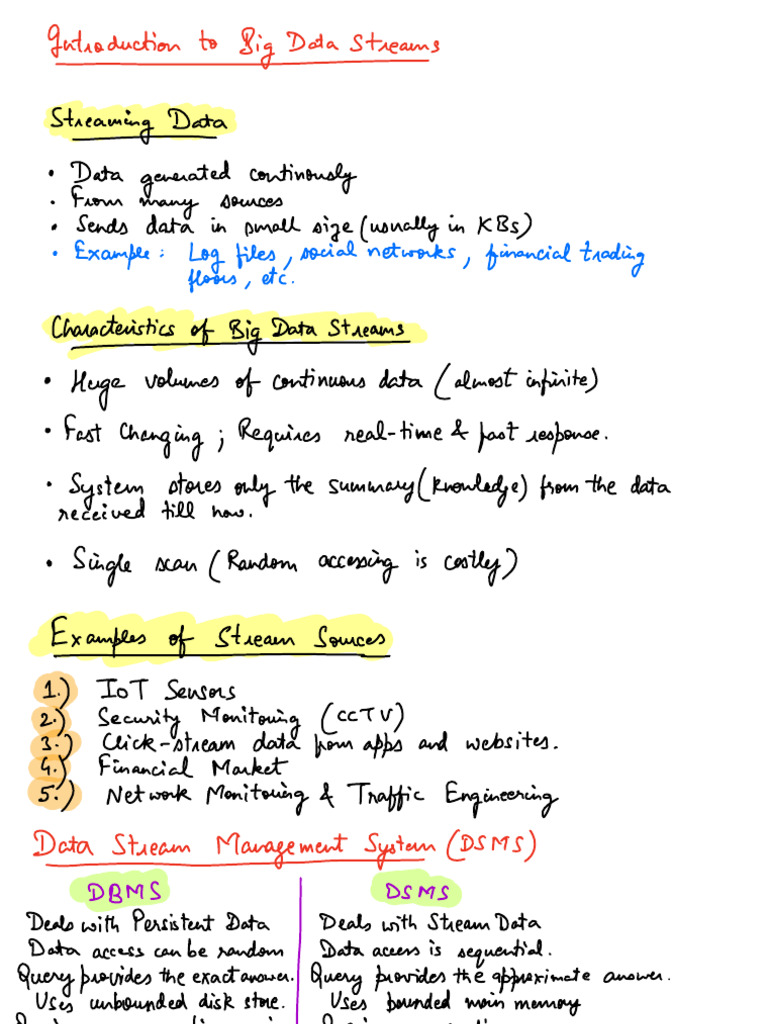 Introduction to Big Data Streams
Streaming Data
• Data generated continously
• From many sources
• Sends data in small size (usually in KBs)
• Example: Log files, social networks, financial trading
floors, etc.
Characteristics of Big Data Streams
• Huge volumes of continuous data (almost infinite)
• Fast Changing; Requires real-time & fast response.
• System stores only the summary (knowledge) from the data
received till now.
• Single scan (Random accessing is costly)
Examples of Stream Sources
1.) IoT Sensors
2.) Security Monitoring (CCTV)
3.) Click-stream data from apps and websites.
4.) Financial Market
5.) Network Monitoring & Traffic Engineering
Data Stream Management System (DSMS)
DBMS
Deals with Persistent Data
Data access can be random
Query provides the exact answer.
Uses unbounded disk store.
DSMS
Deals with Stream Data
Data access is sequential.
Query provides the approximate answer.
Uses bounded main memory